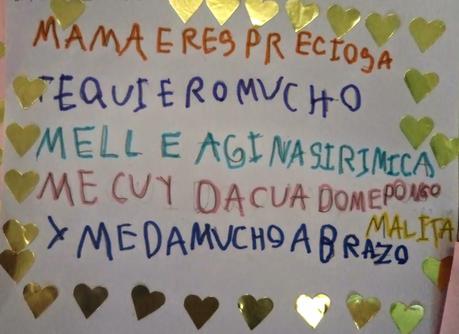 MAMA ERES PRECIOSA
TE QUIERO MUCHO
MELLE AGINASIRIMICA
ME CUYDA CUADO ME PONGO
MALITA
Y ME DA MUCHO ABRAZO